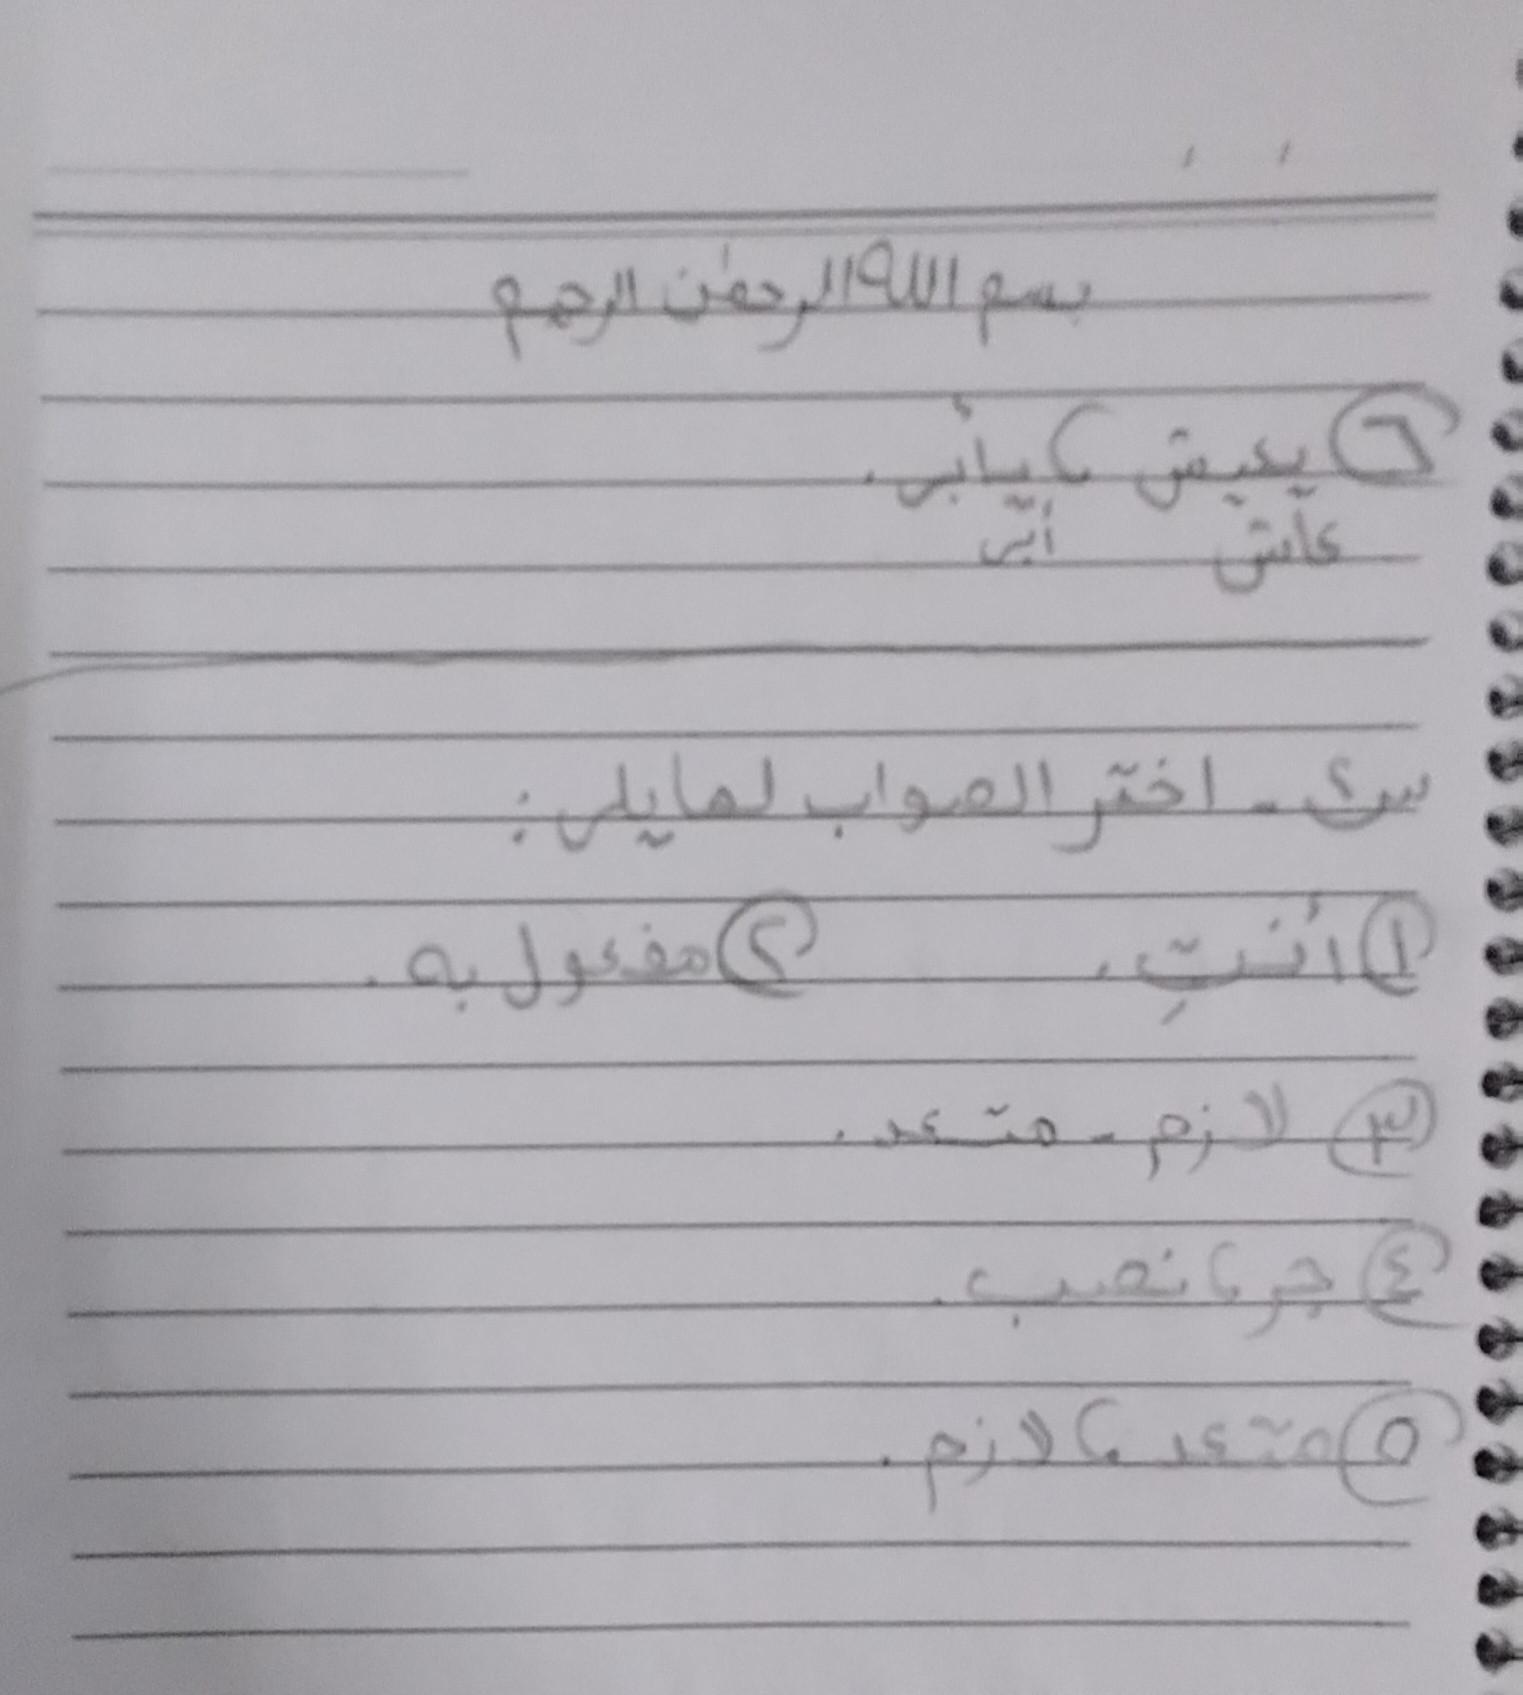 بسم الله الرحمٰن الرحيم
٦ يعيش ، يأبى .
عاش أبى
س٤ - اختر الصواب لما يلي :
١ أنتِ . ٢ مفعول به .
٣ لازم - متعد .
٤ جر ، نصب .
٥ متعد ، لازم .